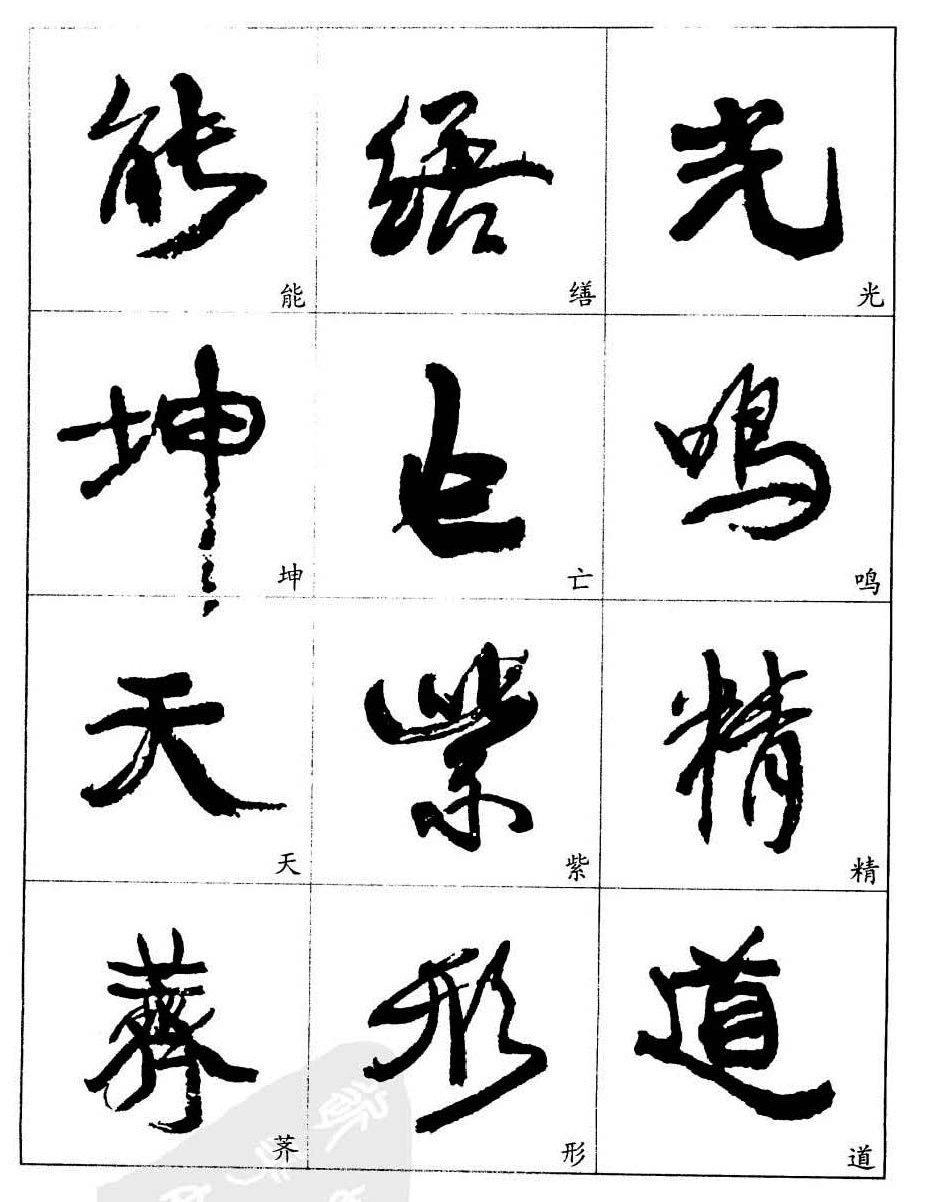 能 缮 光
能 缮 光
坤 亡 鸣
坤 亡 鸣
天 紫 精
天 紫 精
薺 形 道
荠 形 道